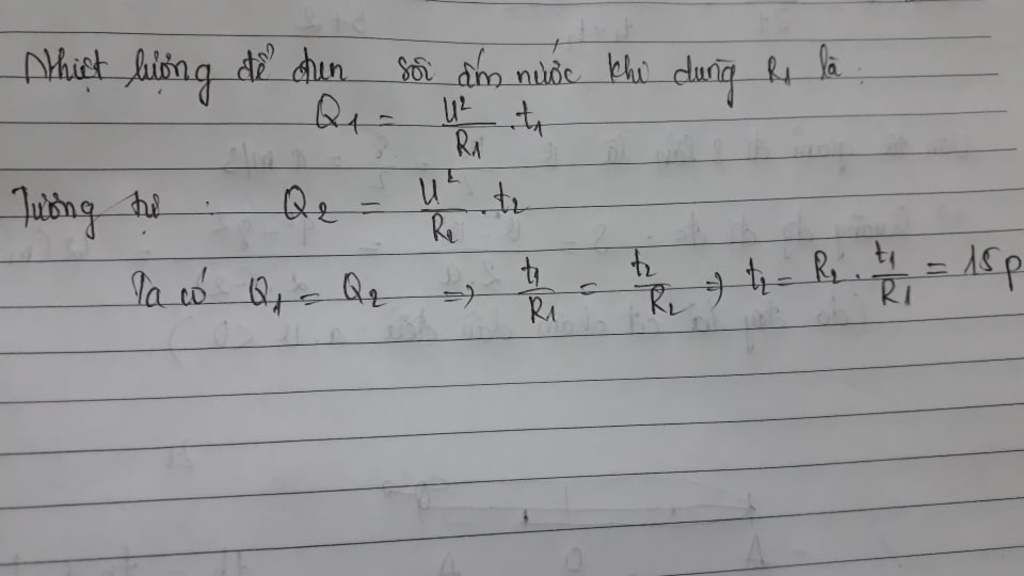 Nhiệt lượng để đun sôi ấm nước khi dung R1 là:
Q1 = U²/R1 . t1
Tương tự : Q2 = U²/R2 . t2
Ta có Q1 = Q2 => t1/R1 = t2/R2 => t2 = R2 . t1/R1 = 15p